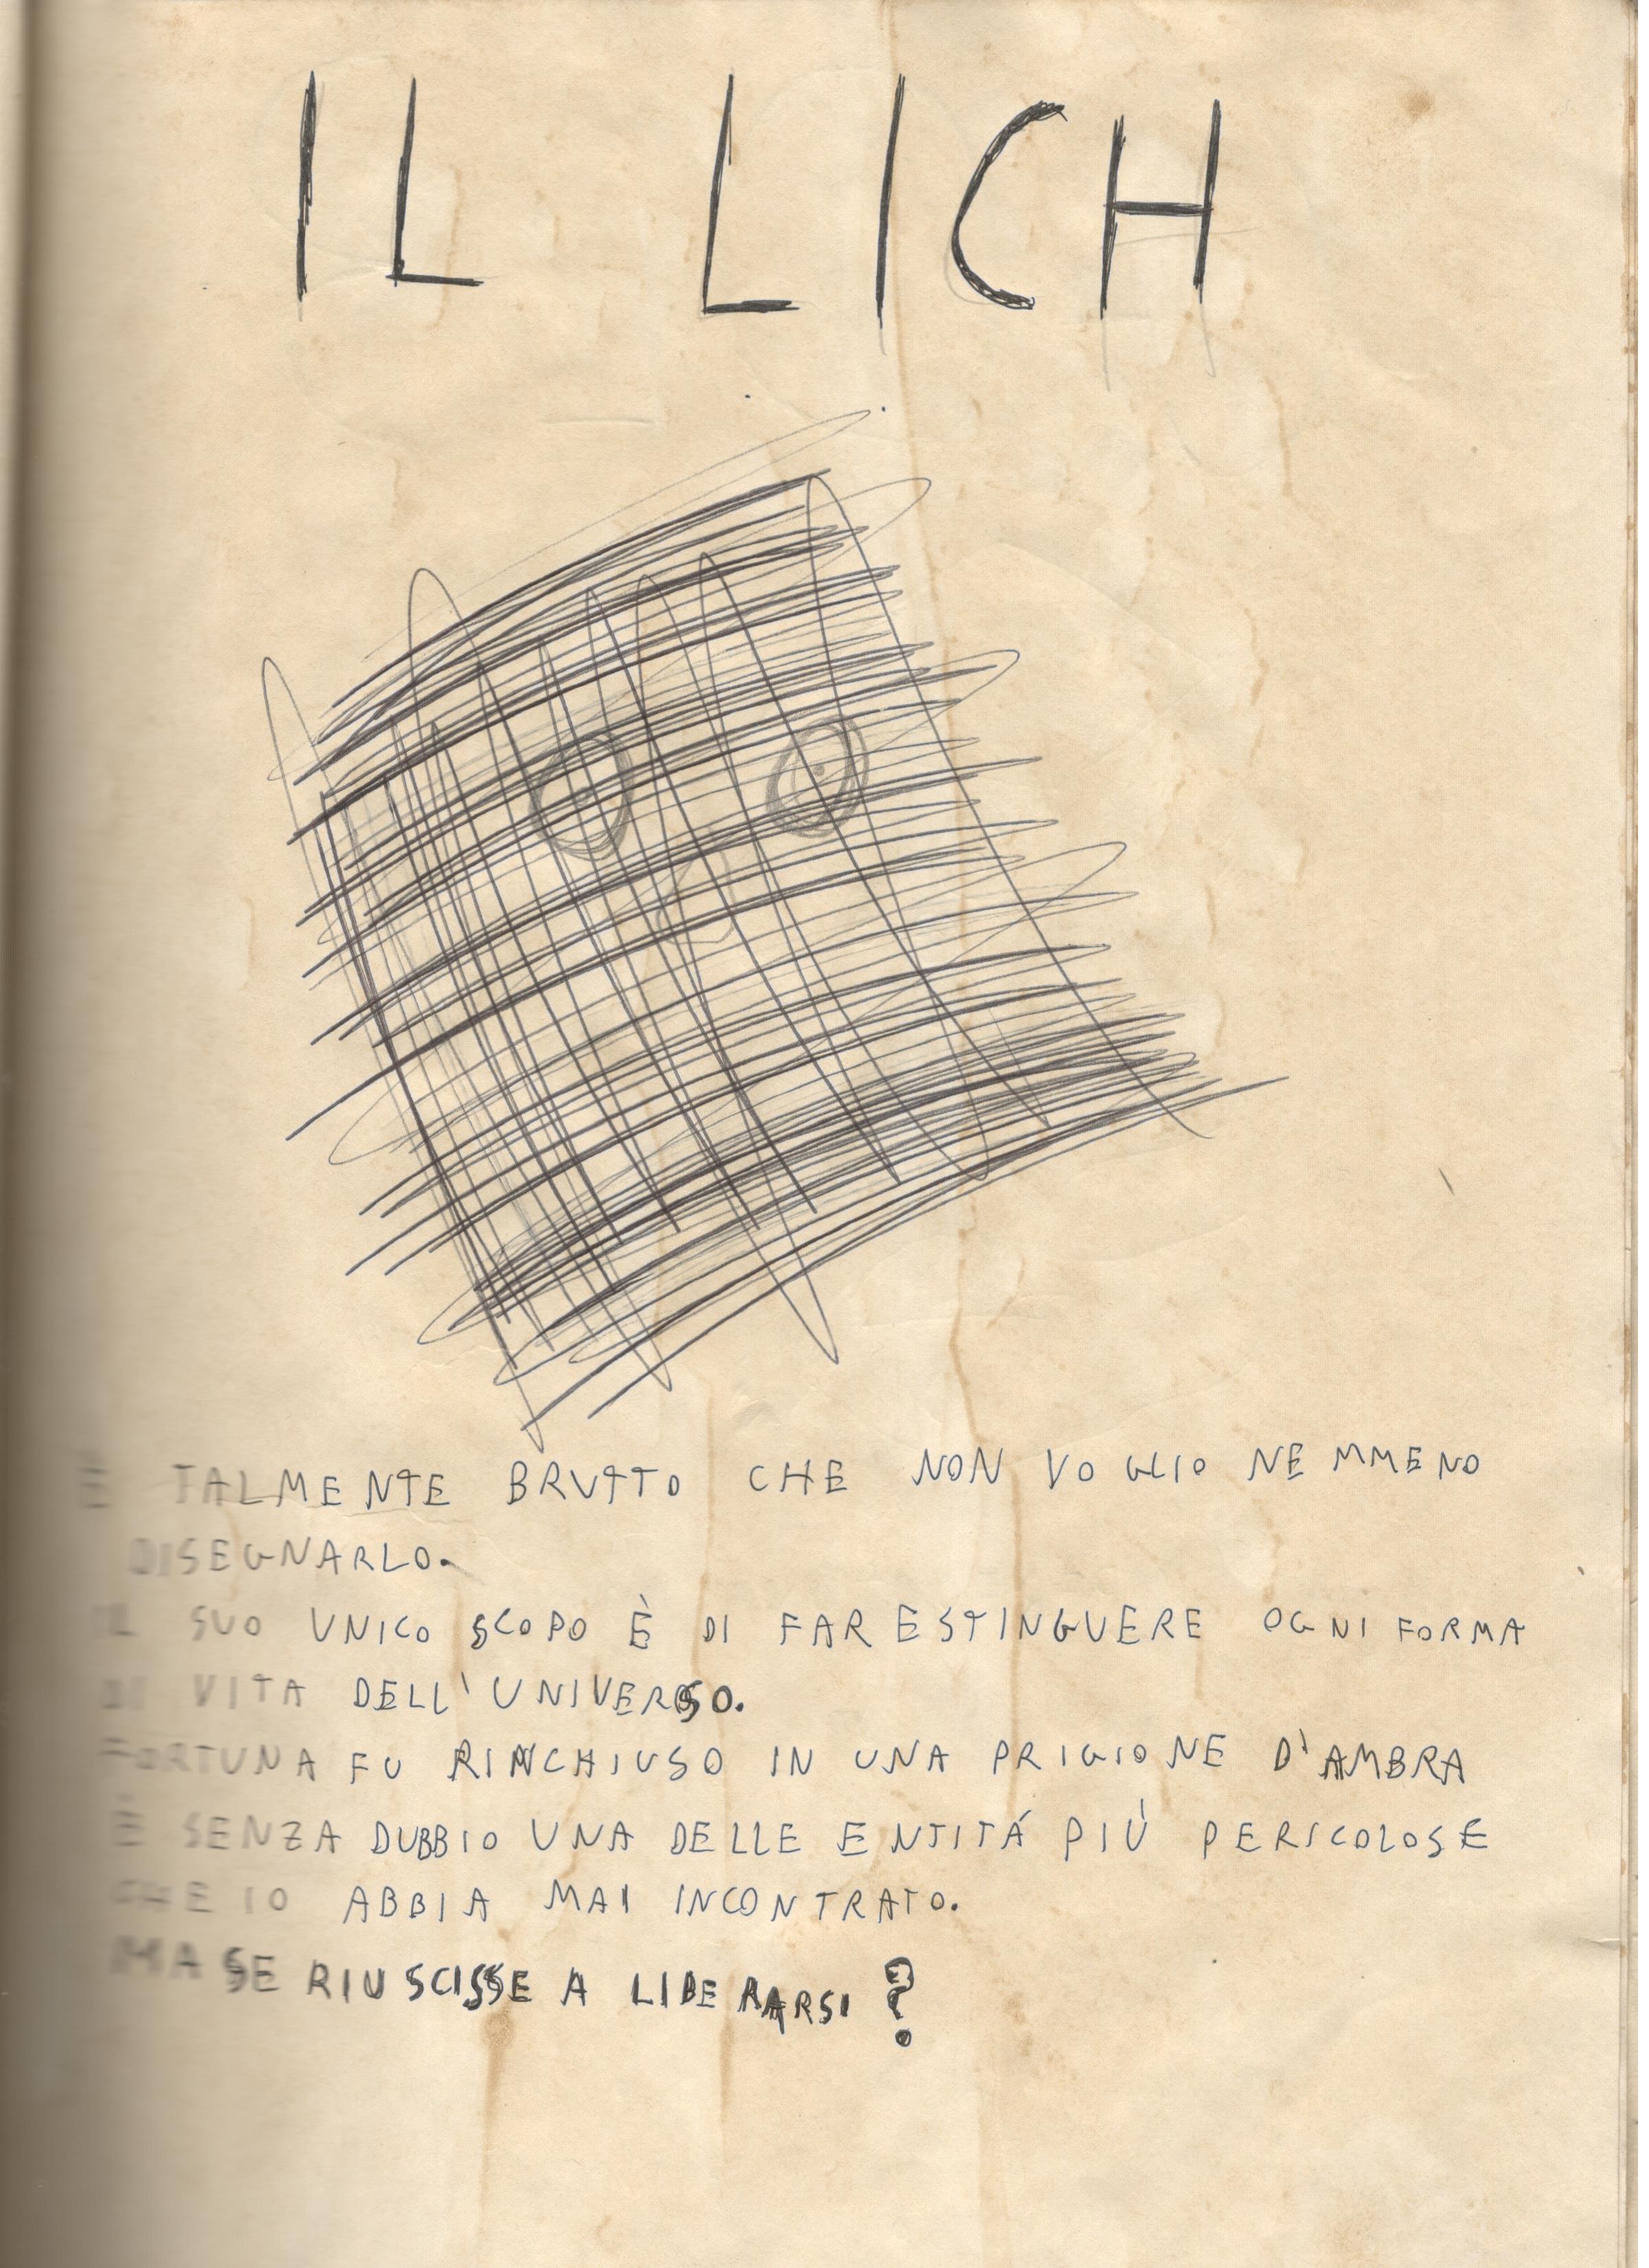 IL LICH
È TALMENTE BRUTTO CHE NON VOGLIO NEMMENO
DISEGNARLO.
IL SUO UNICO SCOPO È DI FAR ESTINGUERE OGNI FORMA
DI VITA DELL'UNIVERSO.
FORTUNA FU RINCHIUSO IN UNA PRIGIONE D'AMBRA
È SENZA DUBBIO UNA DELLE ENTITÁ PIÙ PERICOLOSE
CHE IO ABBIA MAI INCONTRATO.
MA SE RIUSCISSE A LIBERARSI?